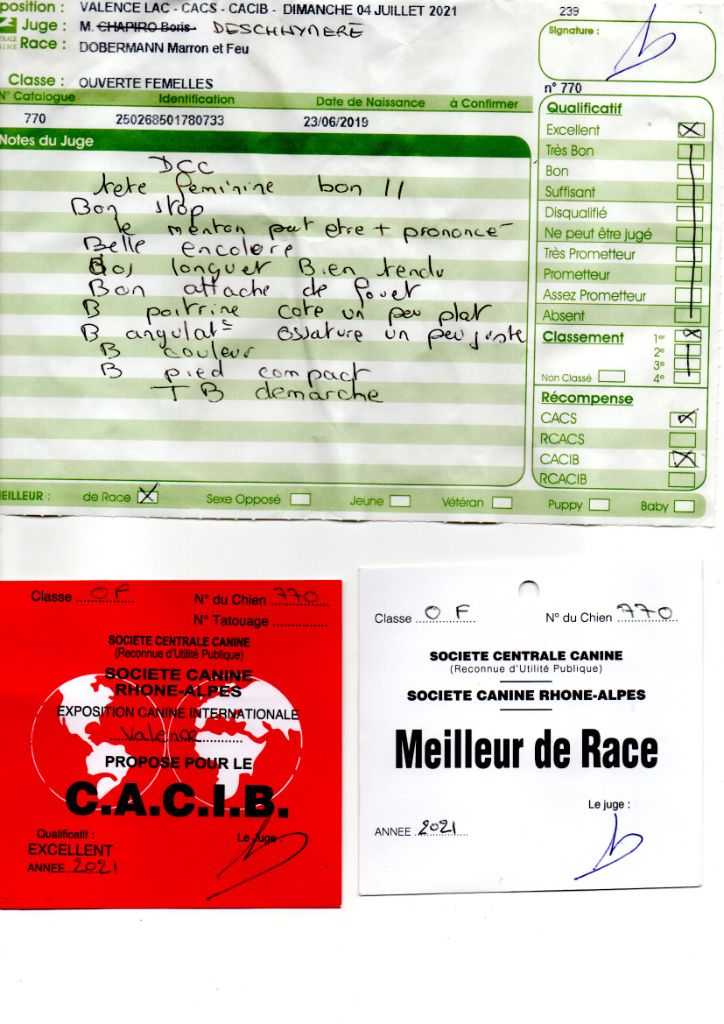 position : VALENCE LAC - CACS - CACIB - DIMANCHE 04 JUILLET 2021 239
Juge : M. CHAPIRO Boris DESCHHYNERE Signature :
Race : DOBERMANN Marron et Feu
Classe : OUVERTE FEMELLES n° 770
N° Catalogue Identification Date de Naissance à Confirmer
770 250268501780733 23/06/2019
Notes du Juge
DCC
tete feminine bon
Bon stop
le menton peut etre + prononcé
Belle encolore
dos longuet Bien tendu
Bon attache de fouet
B poitrine cote un peu plat
B angulat° ossature un peu juste
B couleur
B pied compact
TB demarche
Qualificatif
Excellent
Très Bon
Bon
Suffisant
Disqualifié
Ne peut être jugé
Très Prometteur
Prometteur
Assez Prometteur
Absent
Classement 1er
2e
3e
Non Classé 4e
Récompense
CACS
RCACS
CACIB
RCACIB
EILLEUR : de Race Sexe Opposé Jeune Vétéran Puppy Baby
Classe O F N° du Chien 770
N° Tatouage
SOCIETE CENTRALE CANINE
(Reconnue d'Utilité Publique)
SOCIETE CANINE
RHONE-ALPES
EXPOSITION CANINE INTERNATIONALE
Valence
PROPOSE POUR LE
C.A.C.I.B.
Qualificatif : Le Juge :
EXCELLENT
ANNEE 2021
Classe O F N° du Chien 770
SOCIETE CENTRALE CANINE
(Reconnue d'Utilité Publique)
SOCIETE CANINE RHONE-ALPES
Meilleur de Race
Le juge :
ANNEE 2021